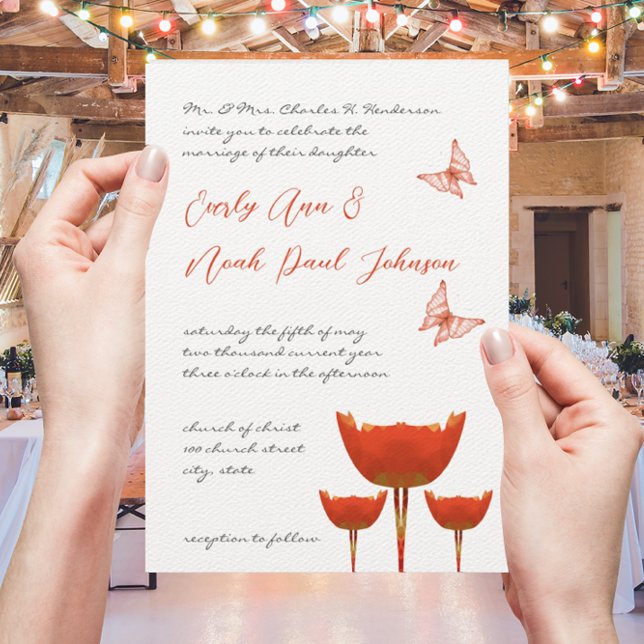 Mr. & Mrs. Charles H. Henderson
invite you to celebrate the
marriage of their daughter
Everly Ann &
Noah Paul Johnson
saturday the fifth of may
two thousand current year
three o'clock in the afternoon
church of christ
100 church street
city, state
reception to follow